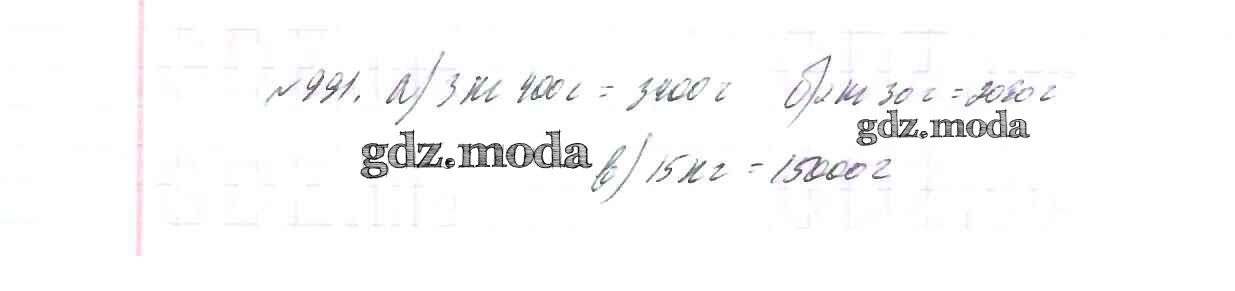 №991. а) 3 кг 400г = 3400г б) 2 кг 30г = 2030г
gdz.moda
gdz.moda
в) 15 кг = 15000г